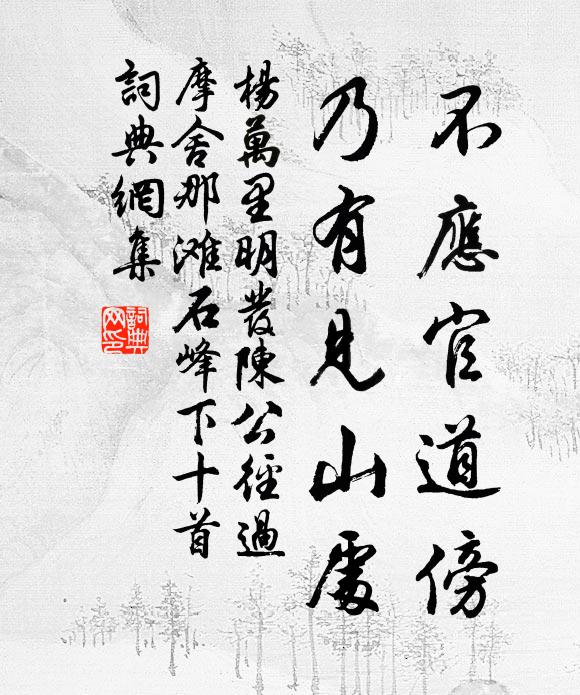 不應官道傍
乃有見山處
楊萬里明發陳公徑過
摩舍那滩石峰下十首
詞典網集
詞典
网印